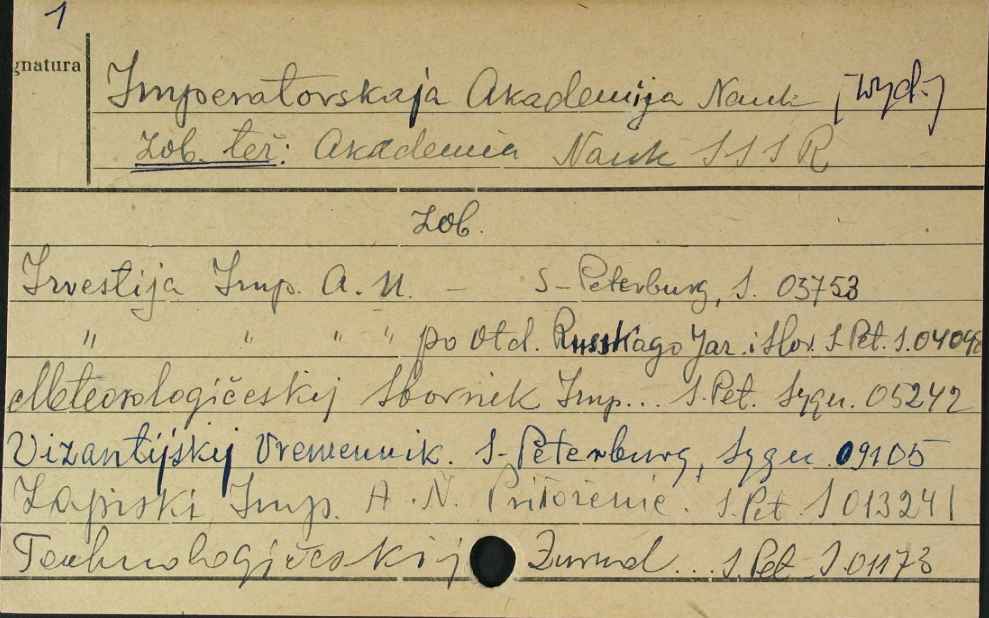 1
gnatura
Imperatorskaja Akademija Nauk [wyd.]
Zob. też: Akademia Nauk SSSR
Zob.
Izvestija Imp. A. N. - S-Peterburg, S. 03753
" " " " po Otd. Russkago Jaz. i Slov. S. Pet. S. 04048
Meteorologičeskij Sbornik Imp... S. Pet. Sygn. 05242
Vizantijskij Vremennik. S-Peterburg, Sygn. 09105
Zapiski Imp. A. N. Priloženie. S. Pet. S 013241
Technologičeskij Žurnal... S. Pet. S. 01178